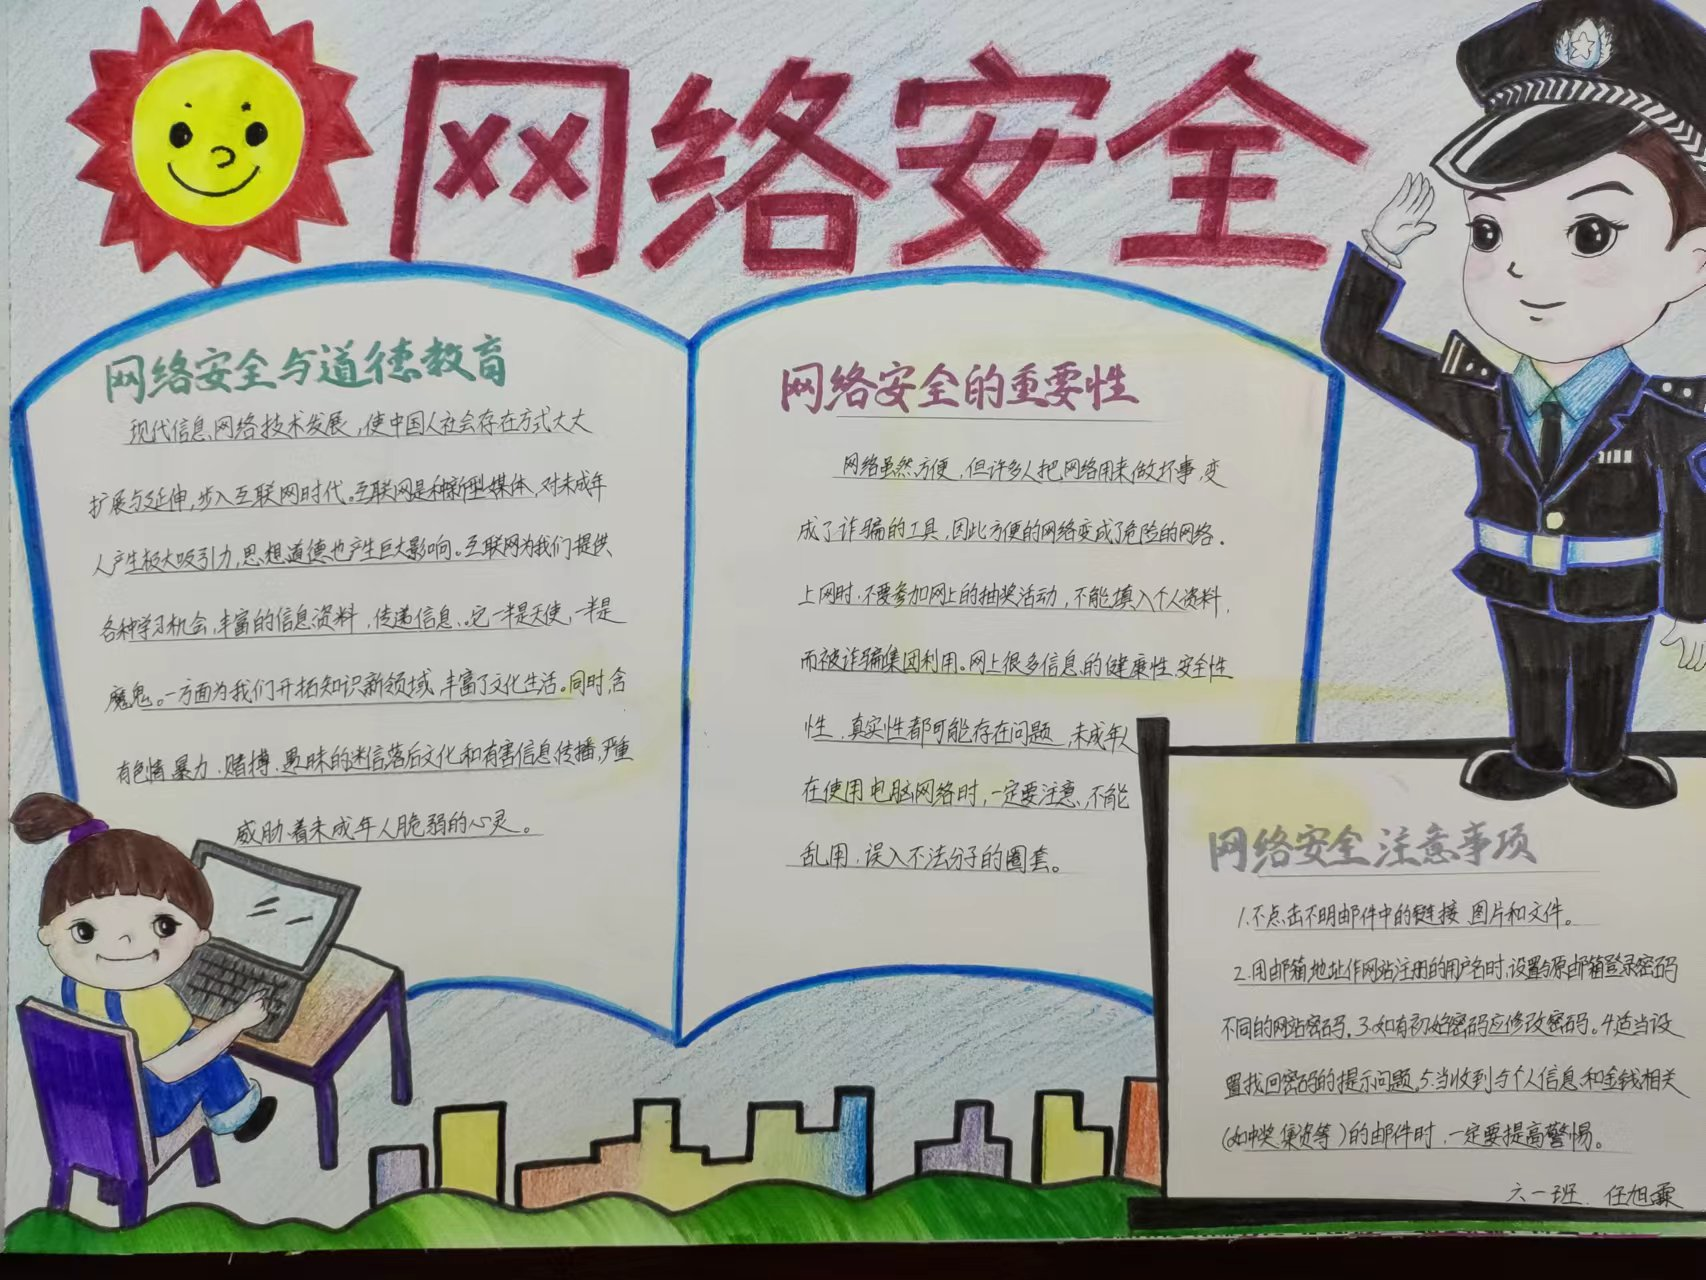 网络安全
网络安全与道德教育
现代信息网络技术发展,使中国人社会存在方式大大
扩展与延伸,步入互联网时代。互联网是种新型媒体,对未成年
人产生极大吸引力,思想道德也产生巨大影响。互联网为我们提供
各种学习机会,丰富的信息资料,传递信息、。它一半是天使,一半是
魔鬼。一方面为我们开拓知识新领域,丰富了文化生活。同时,含
有色情、暴力、赌搏、愚昧的迷信落后文化和有害信息传播,严重
威胁着未成年人脆弱的心灵。
网络安全的重要性
网络虽然方便,但许多人把网络用来做坏事,变
成了诈骗的工具,因此方便的网络变成了危险的网络.
上网时,不要参加网上的抽奖活动,不能填入个人资料,
而被诈骗集团利用。网上很多信息的健康性、安全性
性、真实性都可能存在问题,未成年人
在使用电脑网络时,一定要注意,不能
乱用,误入不法分子的圈套。
网络安全注意事项
1.不点击不明邮件中的链接、图片和文件。
2.用邮箱地址作网站注册的用户名时,设置与原邮箱登录密码
不同的网站密码,3.如有初始密码应修改密码。4.适当设
置找回密码的提示问题。5.当收到与个人信息和金钱相关
(如中奖、集资等)的邮件时,一定要提高警惕。
六一班 任旭霖